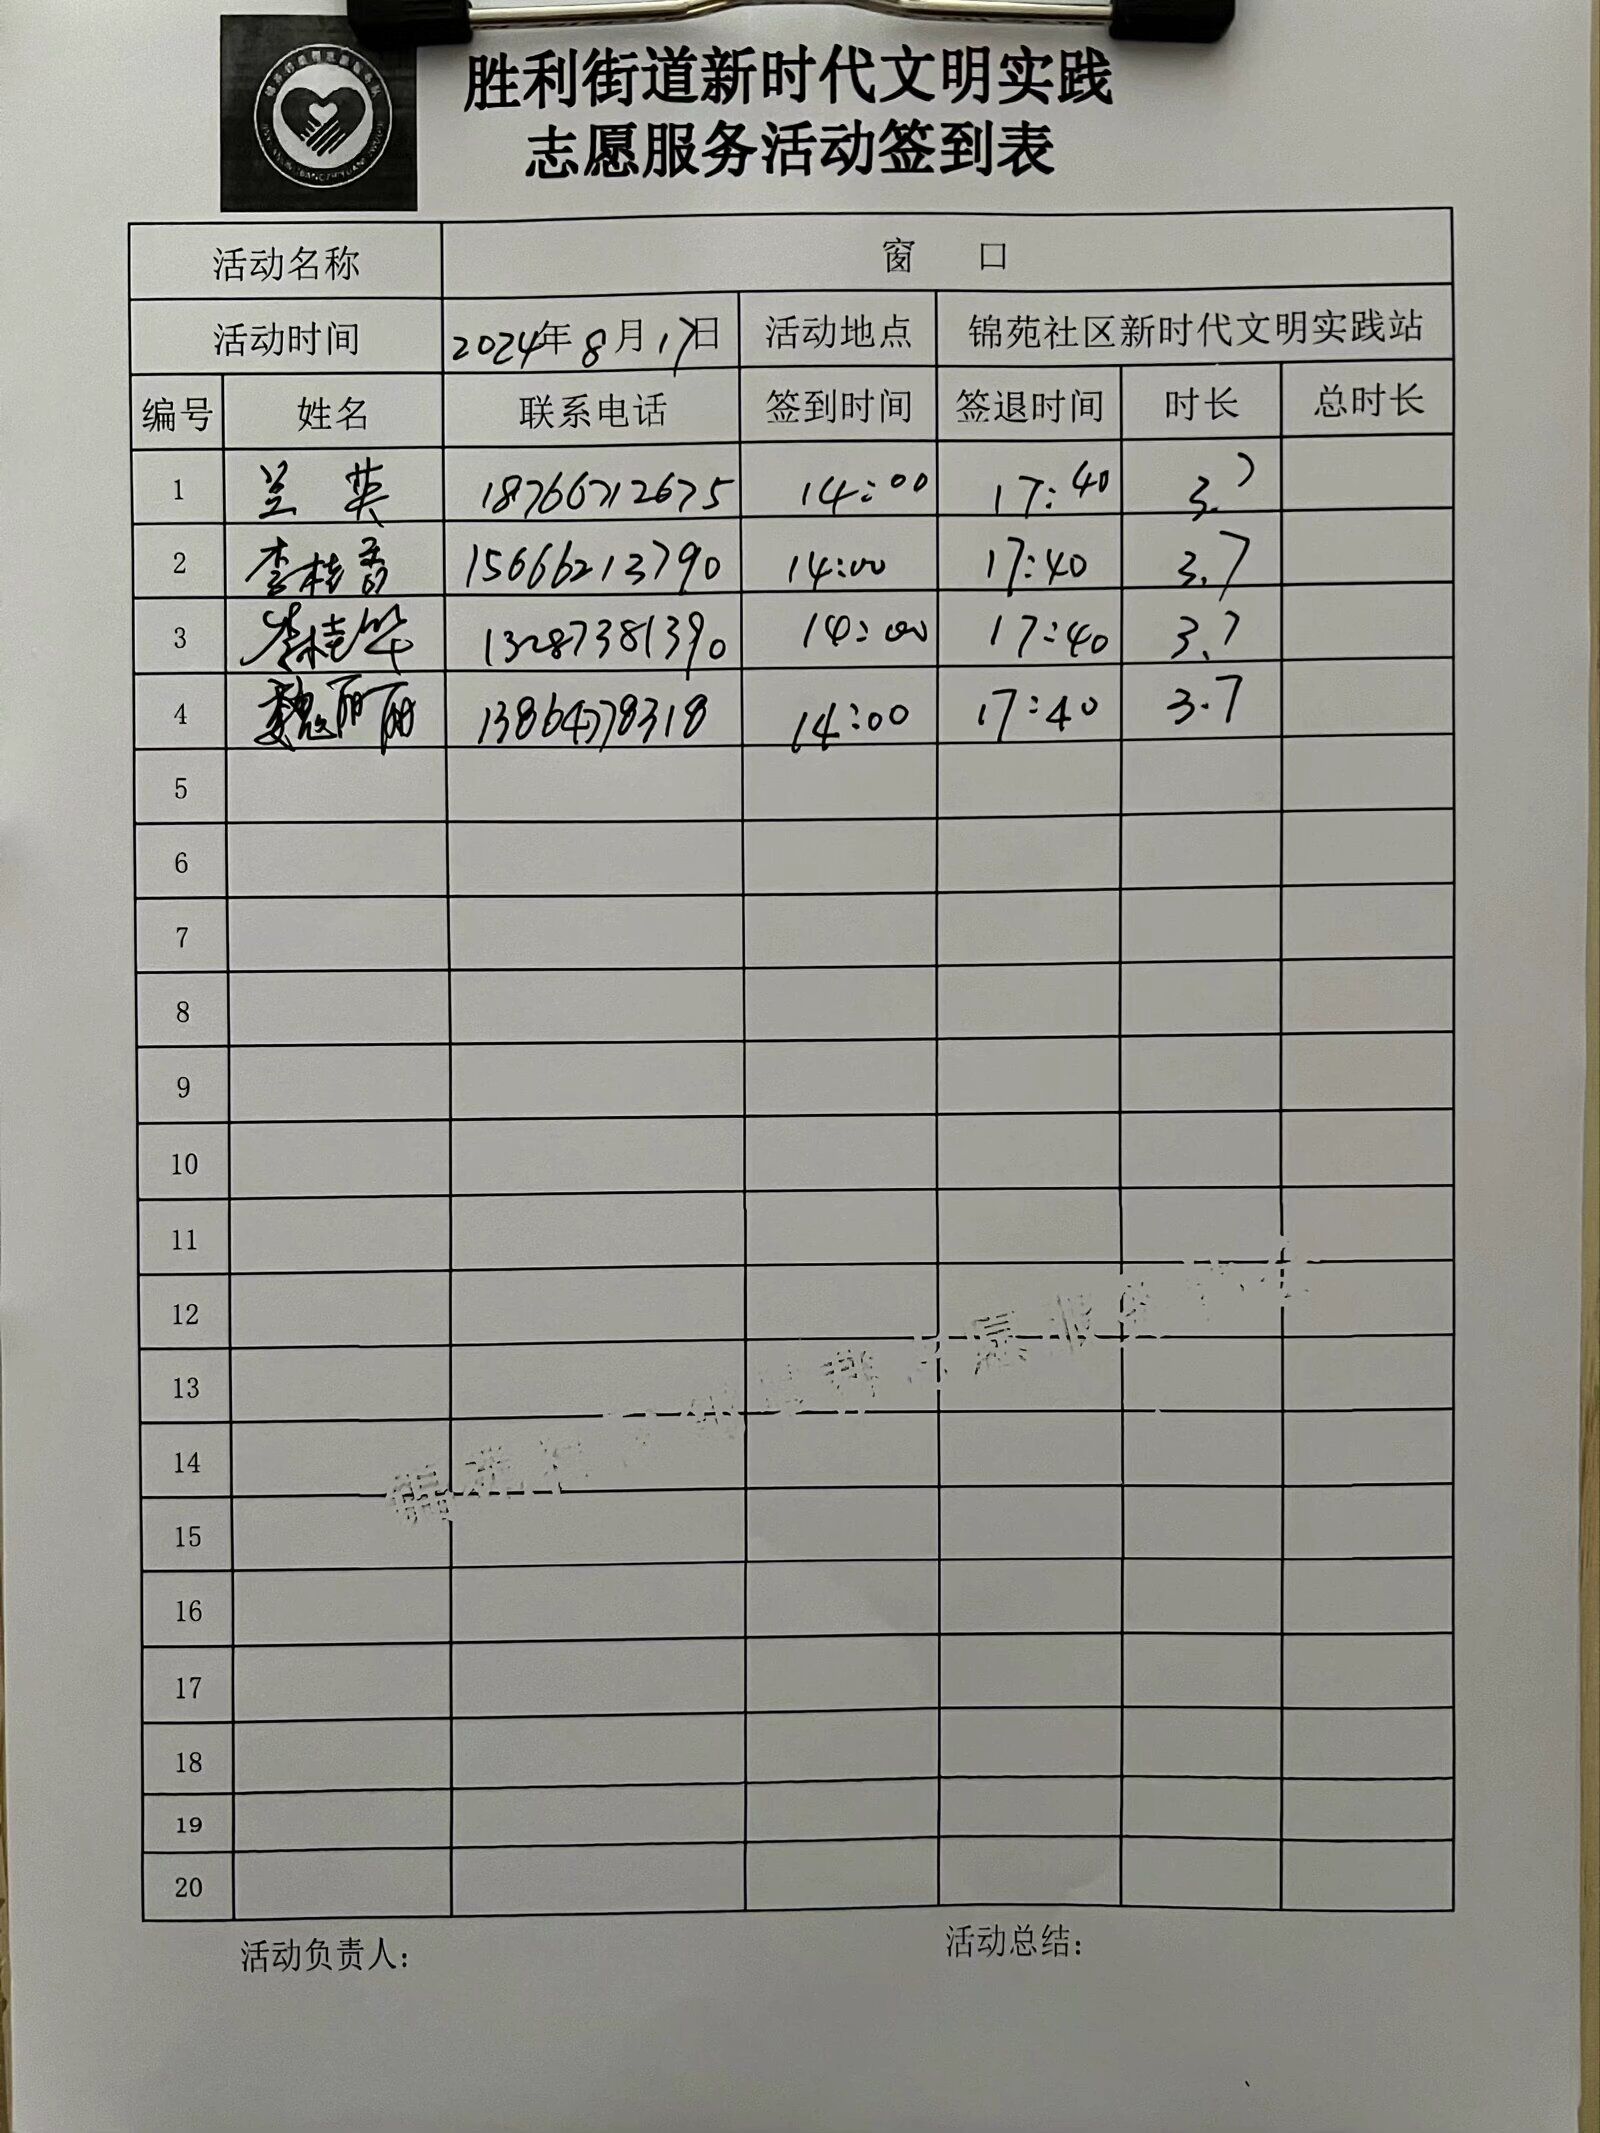 胜利街道新时代文明实践
志愿服务活动签到表
活动名称 窗 口
活动时间 2024年8月17日 活动地点 锦苑社区新时代文明实践站
编号 姓名 联系电话 签到时间 签退时间 时长 总时长
1 兰英 18766712675 14:00 17:40 3.7
2 李桂香 15666213790 14:00 17:40 3.7
3 李桂华 13287381390 14:00 17:40 3.7
4 魏丽丽 13864778318 14:00 17:40 3.7
5
6
7
8
9
10
11
12
13
14
15
16
17
18
19
20
活动负责人: 活动总结: